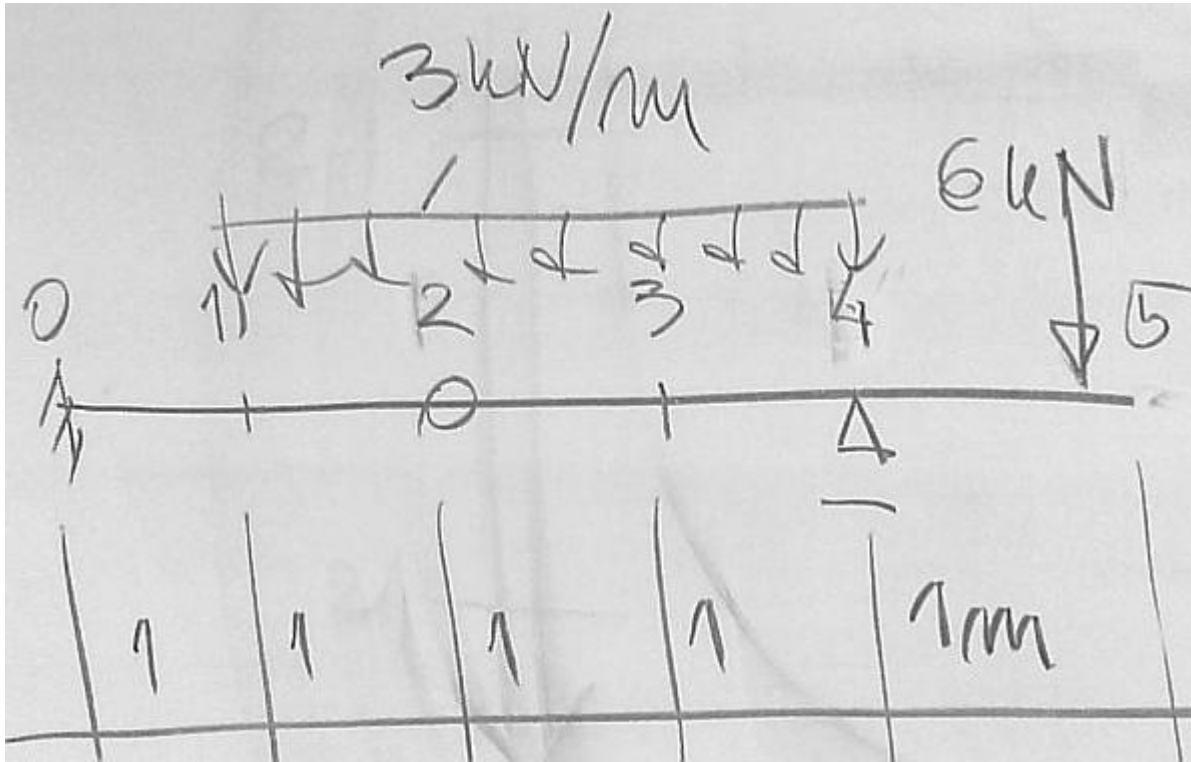 3kN/m
6kN
0 1 2 3 4 5
1 1 1 1 1m